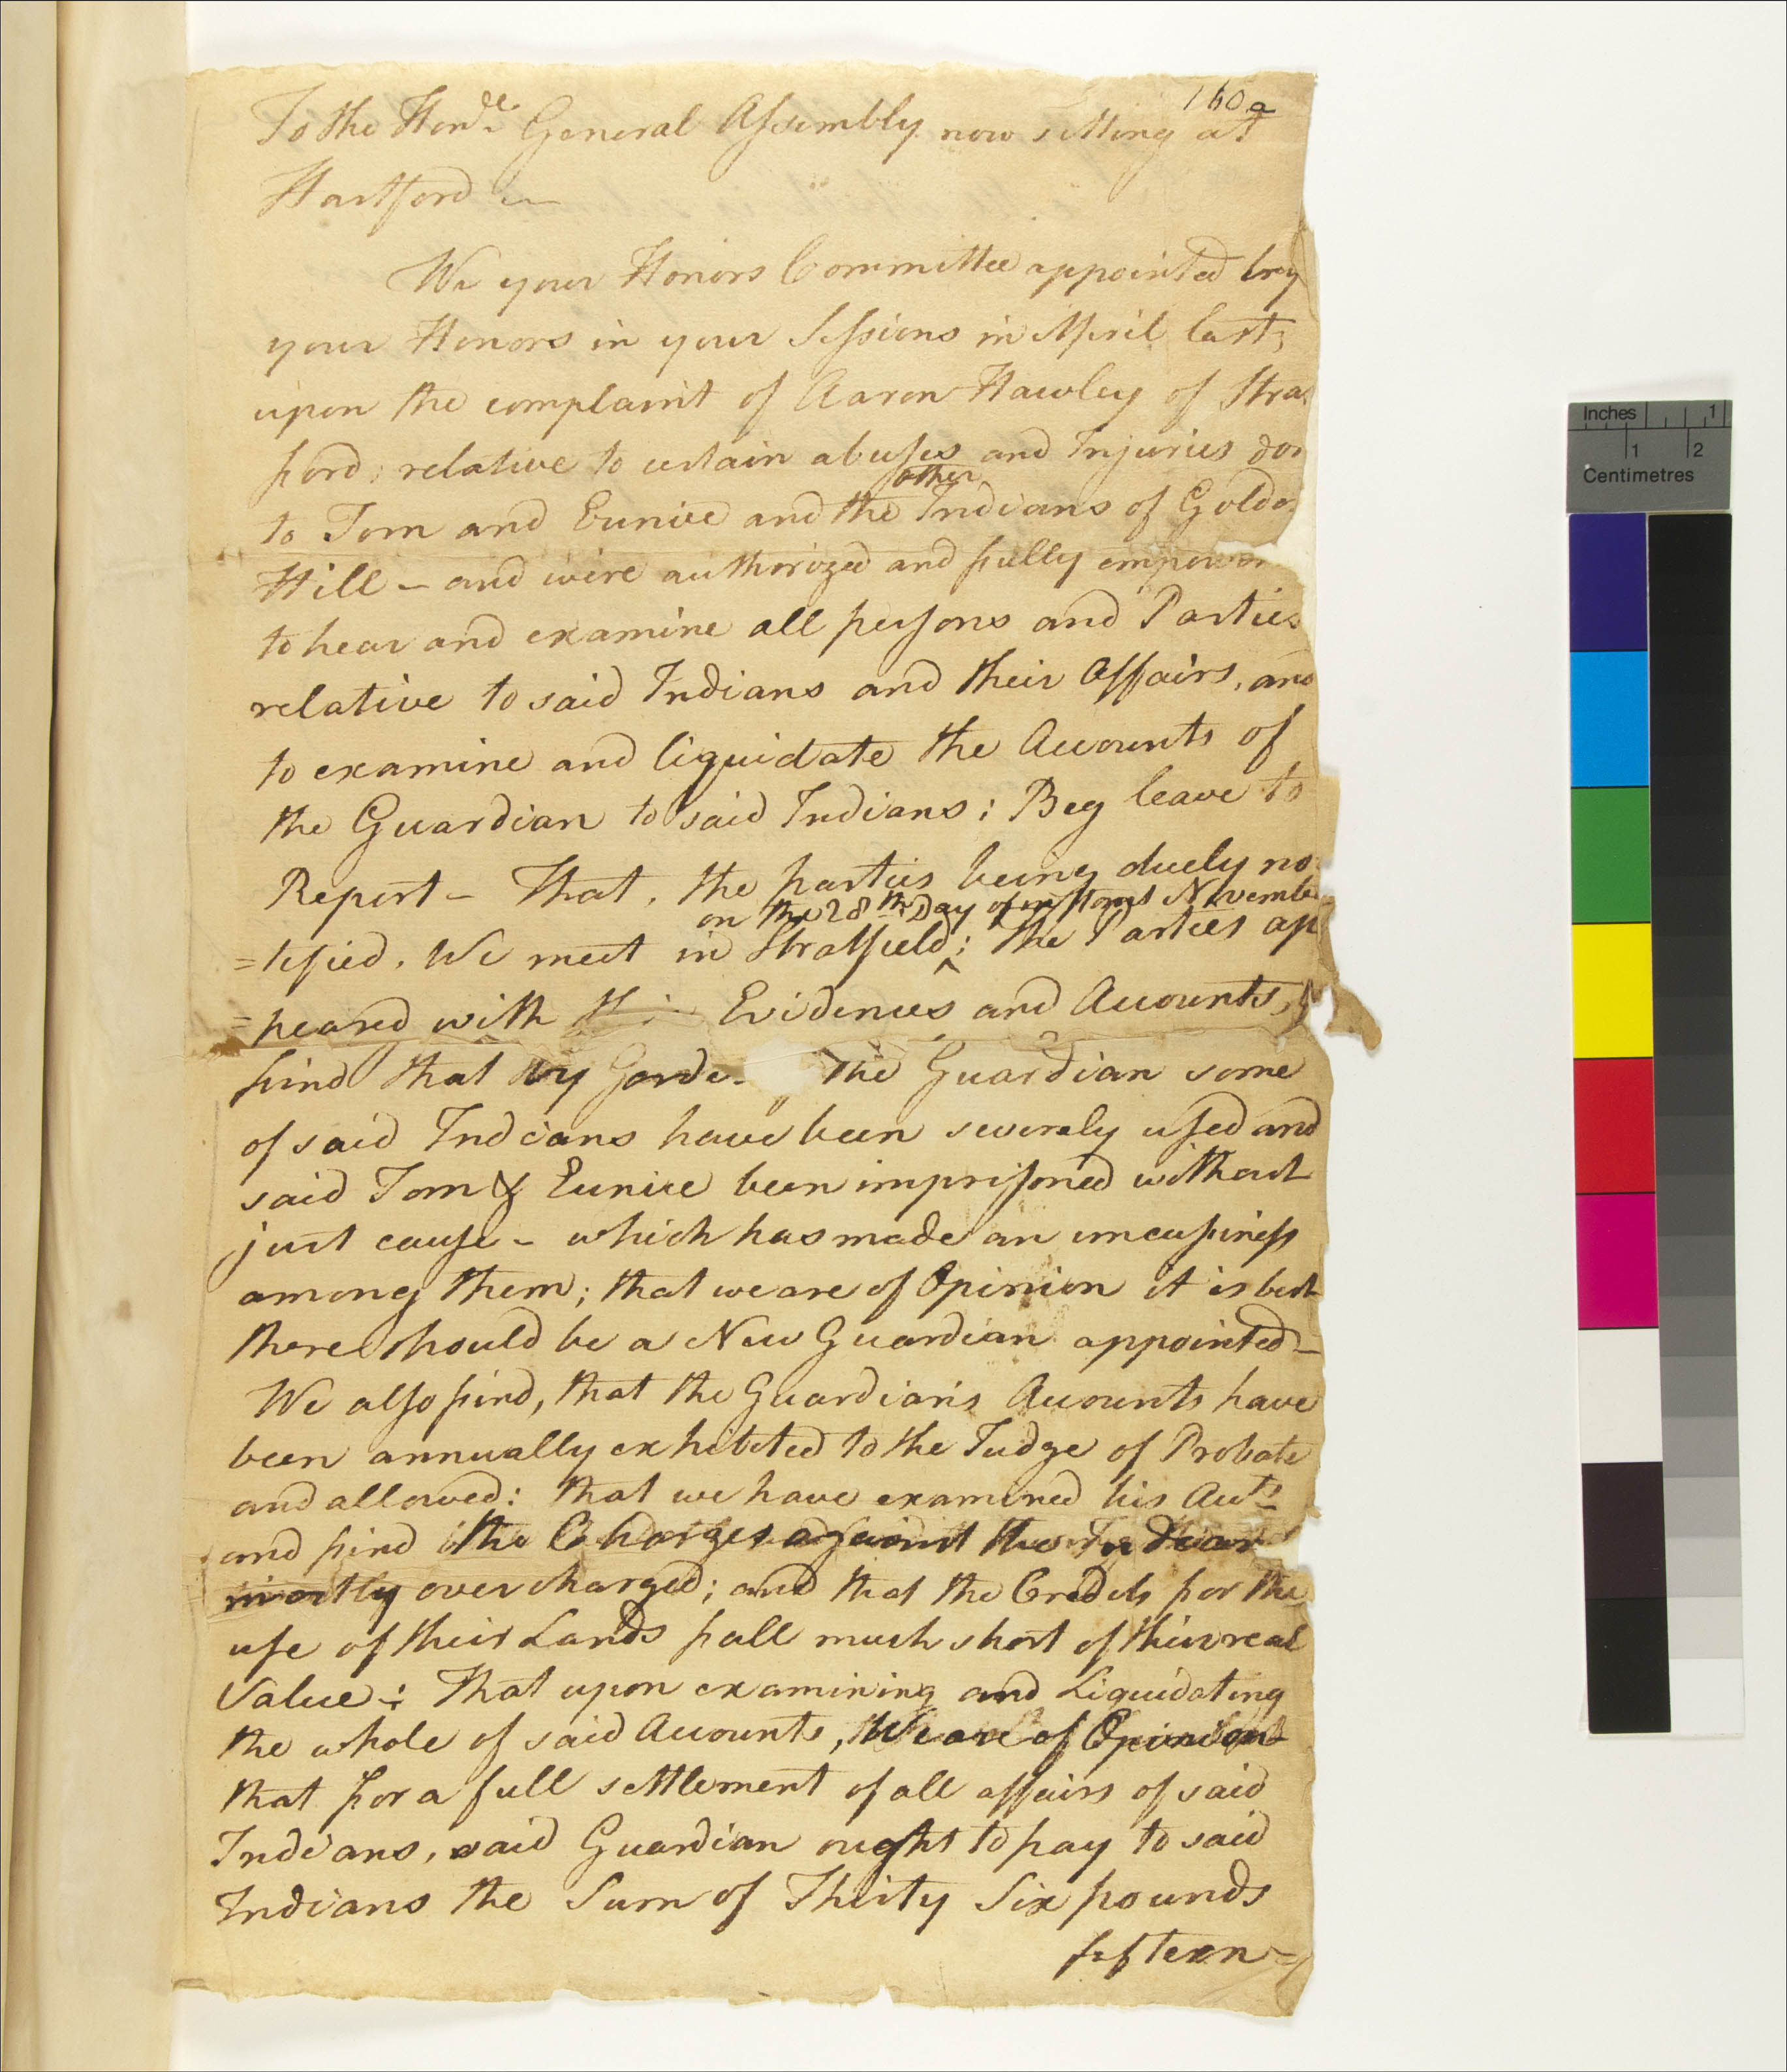 160a
To the Honde General Assembly now sitting at
Hartford
We your Honors Committee appointed by
your Honors in your Sessions in April last,
upon the complaint of Aaron Hawley of Stra
ford; relative to certain abuses and Injuries don
other
to Tom and Eunice and the Indians of Golde
Hill - and were authorized and fully empower
to hear and examine all persons and Parties
relative to said Indians and their Affairs, and
to examine and liquidate the Accounts of
the Guardian to said Indians; Beg leave to
Report - That, the parties being duely no
on the 28th Day of instant November
=tified, We meet in Stratfield; The Parties ap
=peared with Evidences and Accounts, &
find that by the Guardian some
of said Indians have been severely used and
said Tom & Eunice been imprisoned without
just cause - which has made an uneasiness
among them; that we are of Opinion it is best
there should be a New Guardian appointed -
We also find, that the Guardian's Accounts have
been annually exhibited to the Judge of Probate
and allowed: that we have examined his Accts
and find the Charges against the Indians
mostly over charged; and that the Credits for the
use of their Lands fall much short of their real
Value; That upon examining and Liquidating
the whole of said Accounts, We are of Opinion
that for a full settlement of all affairs of said
Indians, said Guardian ought to pay to said
Indians the Sum of Thirty Six pounds
fifteen =
Inches 1
1 2
Centimetres